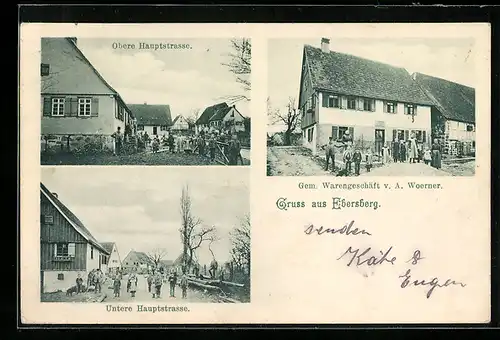 Obere Hauptstrasse.
Gem. Warengeschäft v. A. Woerner.
Gruss aus Ebersberg.
senden
Käthe &
Eugen
Untere Hauptstrasse.